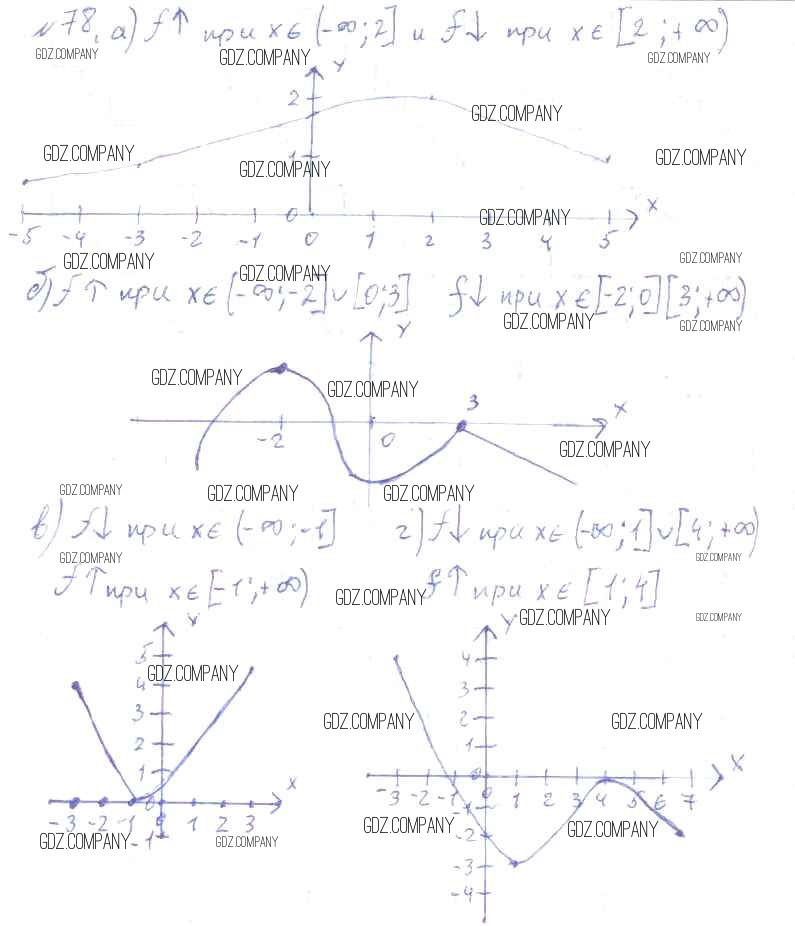 №78. а) f↑ при x∈(-∞;2] и f↓ при x∈[2;+∞)
GDZ.COMPANY GDZ.COMPANY GDZ.COMPANY
Y
2
GDZ.COMPANY
GDZ.COMPANY 1 GDZ.COMPANY GDZ.COMPANY
0 GDZ.COMPANY X
-5 -4 -3 -2 -1 0 1 2 3 4 5
GDZ.COMPANY GDZ.COMPANY GDZ.COMPANY
б) f↑ при x∈(-∞;-2]∪[0;3] f↓ при x∈[-2;0][3;+∞)
GDZ.COMPANY GDZ.COMPANY
Y
GDZ.COMPANY GDZ.COMPANY
3 X
-2 0 GDZ.COMPANY
GDZ.COMPANY GDZ.COMPANY GDZ.COMPANY
в) f↓ при x∈(-∞;-1] г) f↓ при x∈(-∞;1]∪[4;+∞)
GDZ.COMPANY GDZ.COMPANY
f↑ при x∈[-1;+∞) f↑ при x∈[1;4]
GDZ.COMPANY
Y Y GDZ.COMPANY GDZ.COMPANY
5 4
GDZ.COMPANY
4 3
3 2 GDZ.COMPANY GDZ.COMPANY
2 1
1 0 X
X -3 -2 -1 0 1 2 3 4 5 6 7
0 -1
-3 -2 -1 0 1 2 3 GDZ.COMPANY GDZ.COMPANY
-1 -2
GDZ.COMPANY GDZ.COMPANY
-3
-4